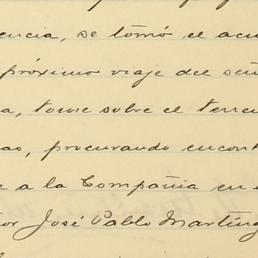 encia, se tomó el acu
próximo viaje del señ
a, tome sobre el terre
as, procurando encont
e a la Compañia en e
or José Pablo Marting